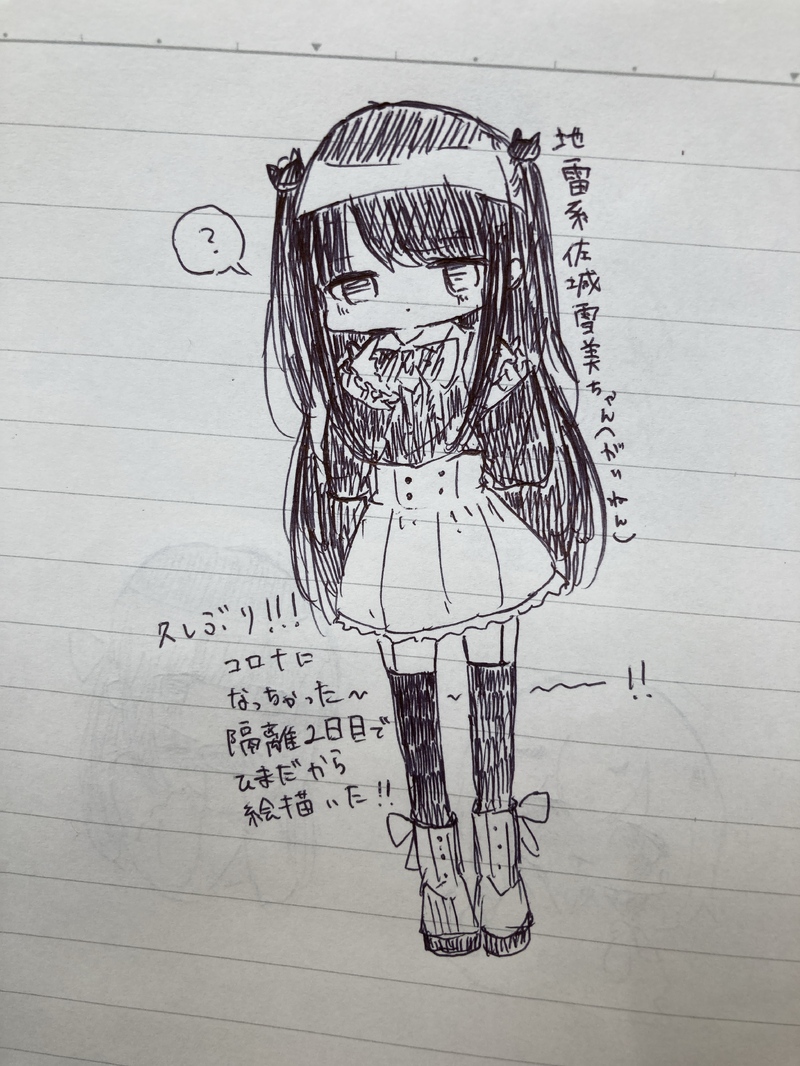 地雷系佐城雪美ちゃん(がいねん)
?
久しぶり!!!
コロナに
なっちゃった〜 〜 〜!!
隔離2日目で
ひまだから
絵描いた!!